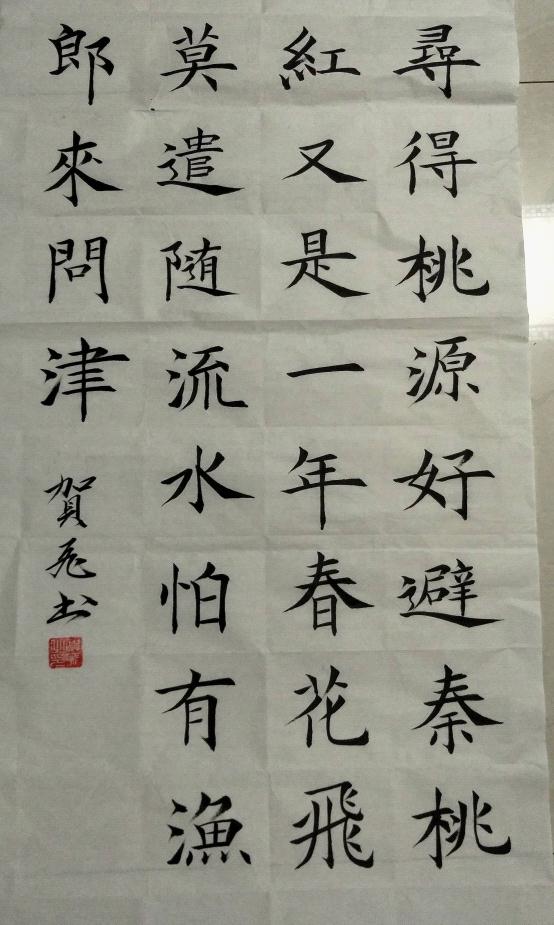 尋得桃源好避秦桃
紅又是一年春花飛
莫遣随流水怕有漁
郎來問津
賀飛书